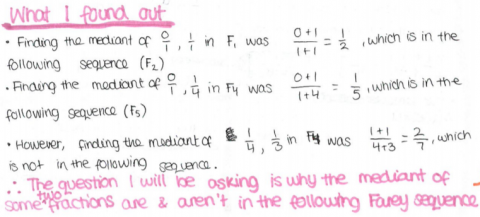 What I found out
• Finding the mediant of 0/1, 1/1 in F₁ was (0+1)/(1+1) = 1/2, which is in the
following sequence (F₂)
• Finding the mediant of 0/1, 1/4 in F4 was (0+1)/(1+4) = 1/5, which is in the
following sequence (F5)
• However, finding the mediant of 1/4, 1/3 in F4 was (1+1)/(4+3) = 2/7, which
is not in the following sequence.
∴ The question I will be asking is why the mediant of
some two fractions are & aren't in the following Farey sequence